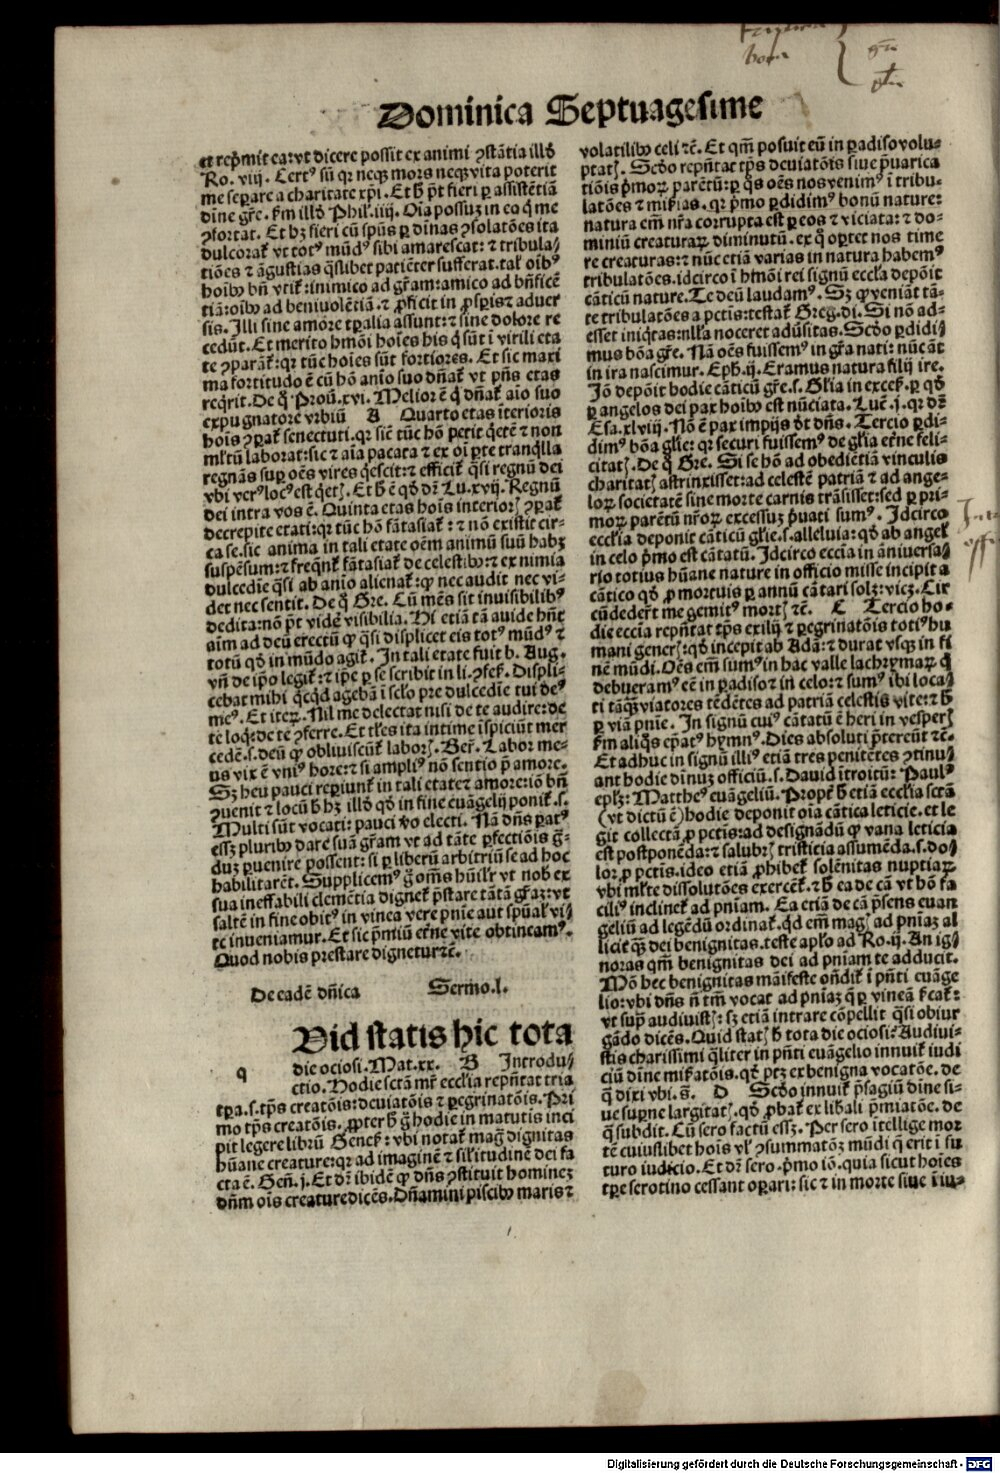 Dominica Septuagesime
et rep̄mit ea: vt dicere possit ex animi ꝯstātia illđ
Ro. viij. Certꝰ sū qꝛ neqꝫ mors neqꝫ vita poterit
me separe a charitate xp̄i. Et h̄ p̄t fieri ꝑ assistētiā
dīne gr̄e. ẜm illđ Phil'. iiij. Oīa possuꝫ in eo q̇ me
ꝯfortat. Et hꝫ fieri cū spūs ꝑ dīnas ꝯsolatōes ita
dulcorat̄ vt totꝰ mūdꝰ sibi amarescat: ⁊ tribula⸗
tiōes ⁊ āgustias qͥslibet patiēter sufferat. tal' oībꝰ
hoībꝫ bn̄ vtit̄: inimico ad gr̄am: amico ad bn̄ficē
tiā: oībꝫ ad beniuolētiā. ⁊ ꝓficit in ꝓspis ⁊ aduer
sis. Illi sine amore tꝑalia assunt: ⁊ sine dolore re
cedūt. Et merito hmōi hoīes his q̇ sūt ī virili eta
te ꝯparāt̄: qꝛ tūc hoīes sūt fortiores. Et sic maxi
ma fortitudo ē cū hō anīo suo dn̄at̄ vt pn̄s etas
reqͥrit. De q̊ Prou. xvi. Melior ē q̇ dn̄at̄ aīo suo
expugnatore vrbiū A Quarto etas īterioris
hoīs ꝯꝑat̄ senectuti. qꝛ sic̄ tūc hō petit qͥetē ⁊ non
ml̄tū laborat: sic ⁊ aīa pacata ⁊ ex oī ꝑte tranqͥlla
regnās suꝑ oēs vires qͥescit: ⁊ efficit̄ qͣsi regnū dei
vbi verꝰ locꝰ est qͥetꝭ. Et h̄ ē qđ dr̄ Lu. xvij. Regnū
dei intra vos ē. Quinta etas hoīs interiorꝭ ꝯꝑat̄
decrepite etati: qꝛ tūc hō fātasiat̄: ⁊ nō existit cir⸗
ca se. sic anima in tali etate oēm animū suū habꝫ
suspēsum: ⁊ freqn̄t̄ fātasiat̄ de celestibꝫ: ⁊ ex nimia
dulcedīe qͣsi ab anīo alienat̄: ꝙ nec audit nec vi⸗
det nec sentit. De q̊ Gre. Cū mēs sit inuisibilibꝰ
dedita: nō p̄t videꝭ visibilia. Hi etiā tā auide hn̄t
aīm ad deū erectū ꝙ qͣsi displicet eis totꝰ mūdꝰ ⁊
totū qđ in mūdo agit̄. In tali etate fuit b. Aug.
vn̄ de ip̄o legit̄: ⁊ ip̄e ꝑ se scribit in li. ꝯfes̄. Displi⸗
cebat mihi qͥcqͥd agebā ī sclo pre dulcedīe tui deꝰ
meꝰ. Et iteꝝ. Nil me delectat nisi de te audire: de
te loqͥ: de te ꝯferre. Et tles ita intime īspiciūt mer
cedē. s. deū ꝙ obliuiscūt̄ laborꝭ. Ber̄. Labor me⸗
us vix ē vniꝰ hore: ⁊ si ampliꝰ nō sentio p̄ amore.
Sꝫ heu pauci repiunt̄ in tali etate ⁊ amore: iō bn̄
ꝯuenit ⁊ locū h̄ hꝫ illđ qđ in fine euāgelij ponit̄. s.
Multi sūt vocati: pauci v̊o electi. Nā dn̄s patꝰ
essꝫ pluribꝫ dare suā gr̄am vt ad tāte ꝑfectiōis g̈⸗
duꝫ ꝑuenire possent: si ꝑ liberū arbitriū se ad hoc
habilitarēt. Supplicemꝰ g̊ om̄s hūilr̄ vt nob̄ ex
sua ineffabili clemētia dignet̄ p̄stare tātā gr̄aꝫ: vt
saltē in fine obitꝰ in vinea vere pn̄ie aut spūal' vi⸗
te inueniamur. Et sic p̄miū et̄ne vite obtineamꝰ.
Quod nobis prestare dignetur ⁊c̄.
De eadē dn̄ica Sermo. l.
Vid statis hic tota
q die ociosi. Mat. xx. B Introdu⸗
ctio. Hodie sctā mr̄ eccl'ia repn̄tat tria
tꝑa. s. tp̄s creatōis: deuiatōis ⁊ ꝑegrinatōis. Pri
mo tp̄s creatōis. ꝓpter h̄ g̊ hodie in matutis inci
pit legere librū Geneẜ: vbi notat̄ maḡ dignitas
hūane creature: qꝛ ad imaginē ⁊ sil'itudinē dei fa
cta ē. Gen̄. j. Et dr̄ ibidē ꝙ dn̄s ꝯstituit hominēꝫ
dn̄m oīs creature dicēs. Dn̄amini piscibꝫ maris ⁊
volatilibꝫ celi ⁊c̄. Et qm̄ posuit eū in ꝑadiso volu⸗
ptatꝭ. Scđo repn̄tat tp̄s deuiatōis siue p̄uarica
tiōis p̄moꝝ parētū: ꝑ q̊s oēs nos venimꝰ ī tribu⸗
latōes ⁊ mīẜias. qꝛ p̄mo ꝑdidimꝰ bonū nature:
natura em̄ nr̄a corrupta est ꝑ eos ⁊ viciata: ⁊ do⸗
miniū creaturaꝝ diminutū. ex q̊ oꝑtet nos time
re creaturas: ⁊ nūc etiā varias in natura habemꝰ
tribulatōes. idcirco ī hmōi rei signū eccl'ia depōit
cāticū nature. Te deū laudamꝰ. Sꝫ ꝙ veniāt tā⸗
te tribulatōes a pctīs: testat̄ Greg. di. Si nō ad⸗
esset iniqͥtas: nlla noceret aduͥsitas. Scđo ꝑdidi⸗
mus bōa gr̄e. Nā oēs fuissemꝰ in gr̄a nati: nūc āt
in ira nascimur. Eph. ij. Eramus natura filij ire.
Iō depōit hodie cāticū gr̄e. s. Gl'ia in excelẜ. ꝑ qđ
ꝑ angelos dei pax hoībꝫ est nūciata. Luc̄. j. qꝛ dr̄
Esa. xlviij. Nō ē pax impijs đt dn̄s. Tercio ꝑdi⸗
dimꝰ bōa gl'ie: qꝛ securi fuissemꝰ de gl'ia et̄ne feli⸗
citatꝭ. De q̊ Gre. Si se hō ad obediētiā vinculis
charitatꝭ astrinxisset: ad celestē patriā ⁊ ad ange⸗
loꝝ societatē sine morte carnis trāsisset: sed ꝑ pri⸗
moꝝ parētū nr̄oꝝ excessuꝫ p̄uati sumꝰ. Idcirco
eccl'ia deponit cāticū gl'ie. s. alleluia: qđ ab angel'
in celo p̄mo est cātatū. Idcirco eccīa in āniuersa⸗
rio totius hūane nature in officio misse incipit a
cātico qđ ꝓ mortuis ꝑ annū cātari solꝫ: vicꝫ. Cir
cūdederūt me gemitꝰ mortꝭ ⁊c̄. C Tercio ho⸗
die eccīa repn̄tat tp̄s exilij ⁊ ꝑegrinatōis totiꝰ hu
mani generꝭ: qđ incepit ab Adā: ⁊ durat vsqꝫ in fi
nē mūdi. Oēs em̄ sumꝰ in hac valle lachrymaꝝ q̇
debueramꝰ eē in ꝑadiso ⁊ in celo: ⁊ sumꝰ ibi loca⸗
ti tāqꝫ viatores tēdētes ad patriā celestis vite: ⁊ h̄
ꝑ viā pn̄ie. In signū cuiꝰ cātatū ē heri in vesperꝭ
ẜm aliq̊s ep̄atꝰ hymnꝰ. Dies absoluti p̄tereūt ⁊c̄.
Et adhuc in signū illiꝰ etiā tres penitētes ꝯtinu⸗
ant hodie dīnuꝫ officiū. s. Dauid ītroitū: Paulꝰ
epl'ꝫ: Mattheꝰ euāgeliū. Propt̄ h̄ etiā eccl'ia sctā
(vt dictū ē) hodie deponit oīa cātica leticie. et le
git collectā ꝓ pctīs: ad designādū ꝙ vana leticia
est postponēda: ⁊ salubrꝭ tristicia assumēda. s. do⸗
loꝝ ꝓ pctīs. ideo etiā ꝓhibet̄ solēnitas nuptiaꝝ
vbi ml̄te dissolutōes exercēt̄. ⁊ h̄ ea de cā vt hō fa
ciliꝰ inclinet̄ ad pn̄iam. Ea etiā de cā p̄sens euan
geliū ad legēdū ordinat̄. qͥd em̄ magꝭ ad pn̄iaꝫ al
licit qͣꝫ dei benignitas. teste apl'o ad Ro. ij. An ig⸗
noras qm̄ benignitas dei ad pn̄iam te adducit.
Mō hec benignitas māifeste on̄dit̄ ī pn̄ti euāge
lio: vbi dn̄s n̄ tm̄ vocat ad pn̄iaꝫ q̄ ꝑ vineā ẜcat̄:
vt supͣ audiuistꝭ: sꝫ etiā intrare cōpellit qͣsi obiur
gādo dicēs. Quid statꝭ h̄ tota die ociosi: Audiui⸗
stis charissimi qͣliter in pn̄ti euāgelio innuit̄ iudi
ciū dīne miẜatōis. qđ ptꝫ ex benigna vocatōe. de
q̄ dixi vbi. s. D Scđo innuit̄ p̄sagiū dīne si⸗
ue supne largitatꝭ. qđ ꝓbat̄ ex libali p̄miatōe. de
q̄ subdit. Cū sero factū essꝫ. Per sero ītellige mor
tē cuiuslibet hoīs vl' ꝯsummatōꝫ mūdi q̄ erit ī fu
turo iudicio. Et dr̄ sero. p̄mo iō. quia sicut hoīes
tꝑe serotino cessant oꝑari: sic ⁊ in morte siue ī iu⸗
Digitalisierung gefördert durch die Deutsche Forschungsgemeinschaft - DFG